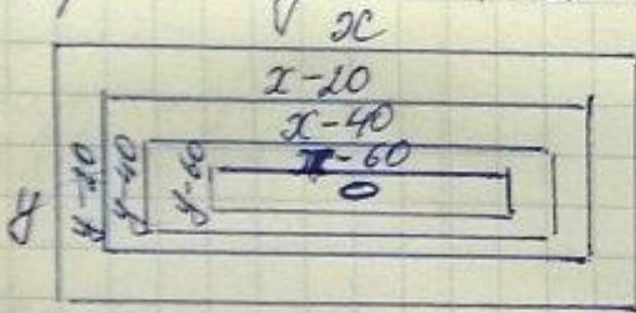 x
x-20
x-40
x-60
y
y-20
y-40
y-60
0